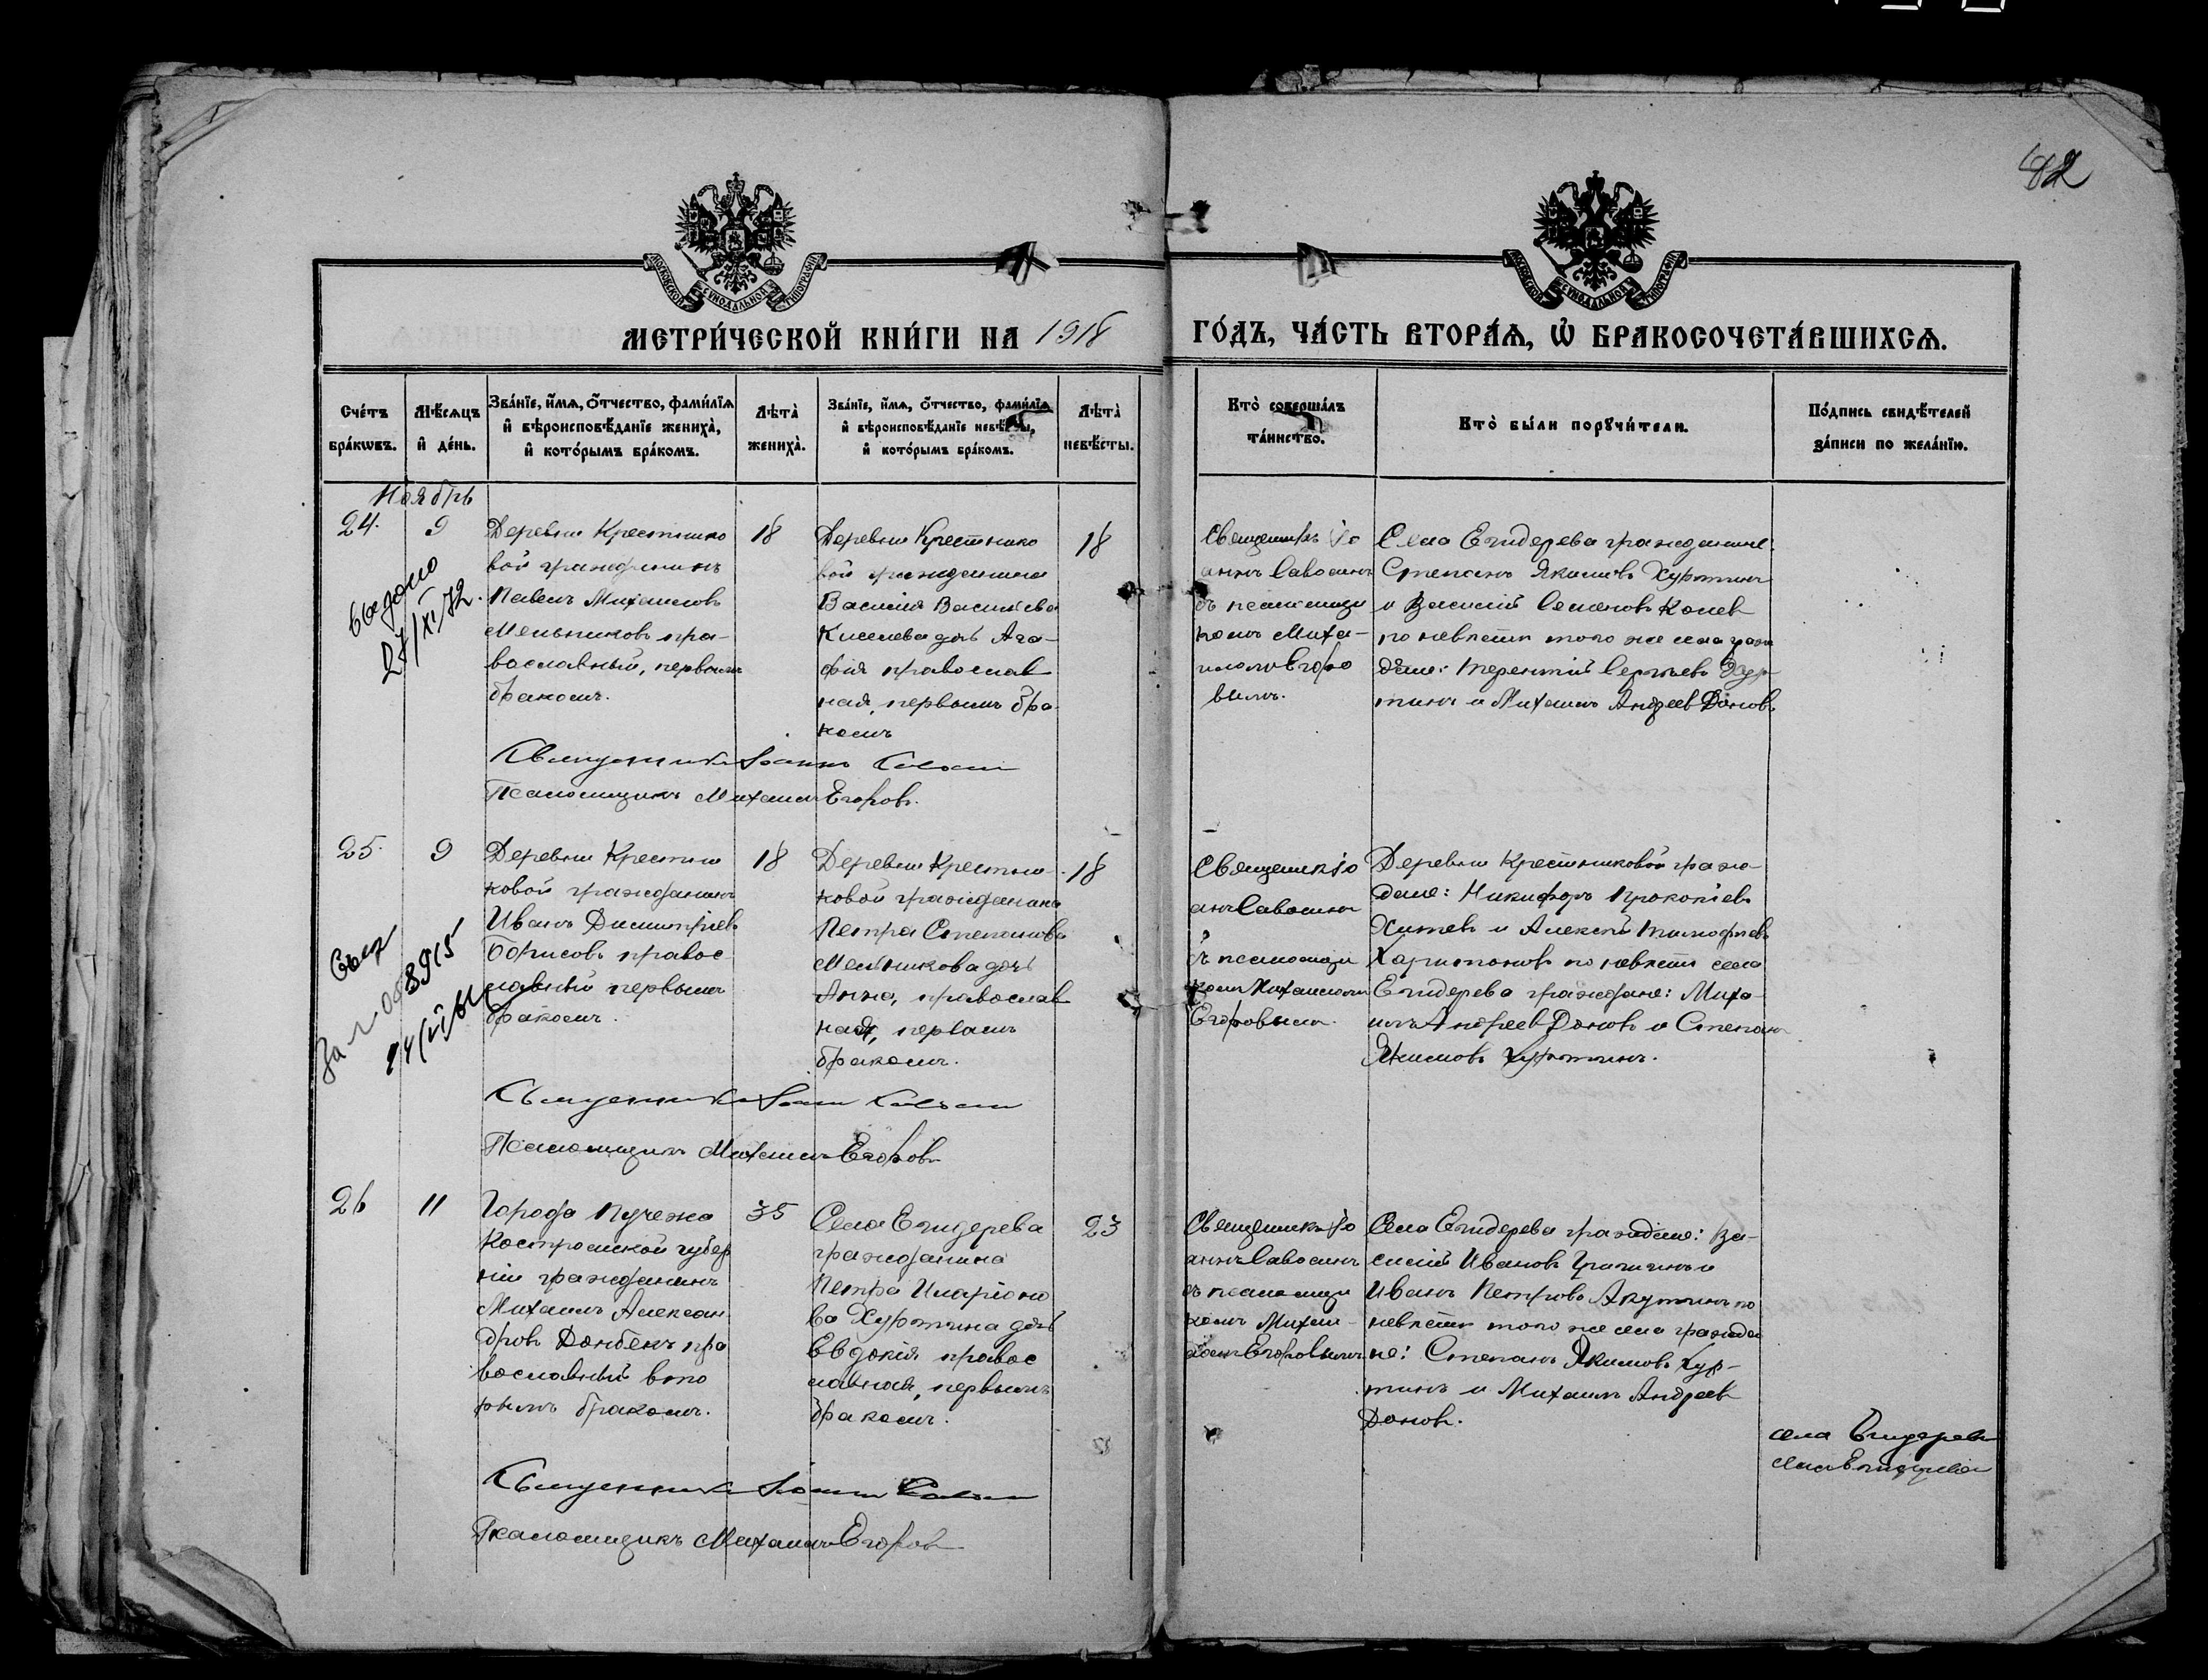 82
МОСКОВСКОЙ СѴНОДАЛЬНОЙ ТИПОГРАФІИ
МОСКОВСКОЙ СѴНОДАЛЬНОЙ ТИПОГРАФІИ
МЕТРИ́ЧЕСКОЙ КНИ́ГИ НА 1918
ГО́ДЪ, ЧА́СТЬ ВТОРА́Ѧ, Ѽ БРАКОСОЧЕТА́ВШИХСѦ.
Сче́тъ
бра́кѡвъ.
Мѣ́сѧцъ
и҆ де́нь.
Зва́нїе, и҆́мѧ, ѻ҆́тчество, фами́лїѧ
и҆ вѣроисповѣ́данїе жениха̀,
и҆ кото́рымъ бра́комъ.
Лѣта̀
жениха̀.
Зва́нїе, и҆́мѧ, ѻ҆́тчество, фами́лїѧ
и҆ вѣроисповѣ́данїе невѣ́сты,
и҆ кото́рымъ бра́комъ.
Лѣта̀
невѣ́сты.
Кто̀ соверша́лъ
та́инство.
Кто̀ бы́ли порꙋчи́тели.
По́дпись свидѣ́телей
за́писи по жела́нїю.
Ноябрь
24.
9
Деревни Крестнико
вой гражданинъ
Павелъ Михаиловъ
Мельниковъ пра-
вославный, первымъ
бракомъ.
18
Деревни Крестнико
вой гражданина
Василія Васильева
Киселева дочь Ага-
фія православ
ная, первымъ бра
комъ
18
Священникъ Іо
аннъ Савосинъ
съ псаломщи
комъ Миха-
иломъ Егоро
вымъ.
Села Егидерева граждане:
Степанъ Якимовъ Хуртинъ
и Василій Семеновъ Конев
по невѣстѣ того же села граж
дане: Терентій Сергѣевъ Хур-
тинъ и Михаилъ Андреев Доновъ
выдано
27/XI 72.
Священникъ Іоаннъ Савосин
Псаломщикъ Михаилъ Егоровъ.
25.
9
Деревни Крестни
ковой гражданинъ
Иванъ Димитріевъ
Борисовъ правос
лавный первымъ
бракомъ.
18
Деревни Крестни-
ковой гражданина
Петра Степанова
Мельникова дочь
Анна, православ
ная, первымъ
бракомъ.
18
Священникъ Іо
анъ Савосинъ
съ псаломщи
комъ Михаиломъ
Егоровымъ.
Деревни Крестниковой граж-
дане: Никифоръ Прокопіевъ
Хитевъ и Алексѣй Тимофѣевъ
Харитоновъ по невѣстѣ села
Егидерева граждане: Миха-
илъ Андреев Доновъ и Степанъ
Якимовъ Хуртинъ.
Священникъ Іоаннъ Савосин
Псаломщикъ Михаилъ Егоровъ
26
11
Города Пучежа
Костромской губер
ніи гражданинъ
Михаилъ Алексан
дровъ Донбекъ пра
вославный вто
рымъ бракомъ.
35
Села Егидерева
гражданина
Петра Иларіоно
ва Хуртина дочь
Евдокія правос
лавная, первымъ
бракомъ.
23
Священникъ Іо
аннъ Савосинъ
съ псаломщи
комъ Михаи-
ломъ Егоровымъ
Села Егидерева граждане: Ва-
силій Ивановъ и
Иванъ Петровъ Акутинъ по
невѣстѣ того же села гражда
не: Степанъ Якимовъ Хур-
тинъ и Михаилъ Андреев
Доновъ.
села Егидерева
села Егидерева
Священникъ Іоаннъ Савосин
Псаломщикъ Михаилъ Егоровъ